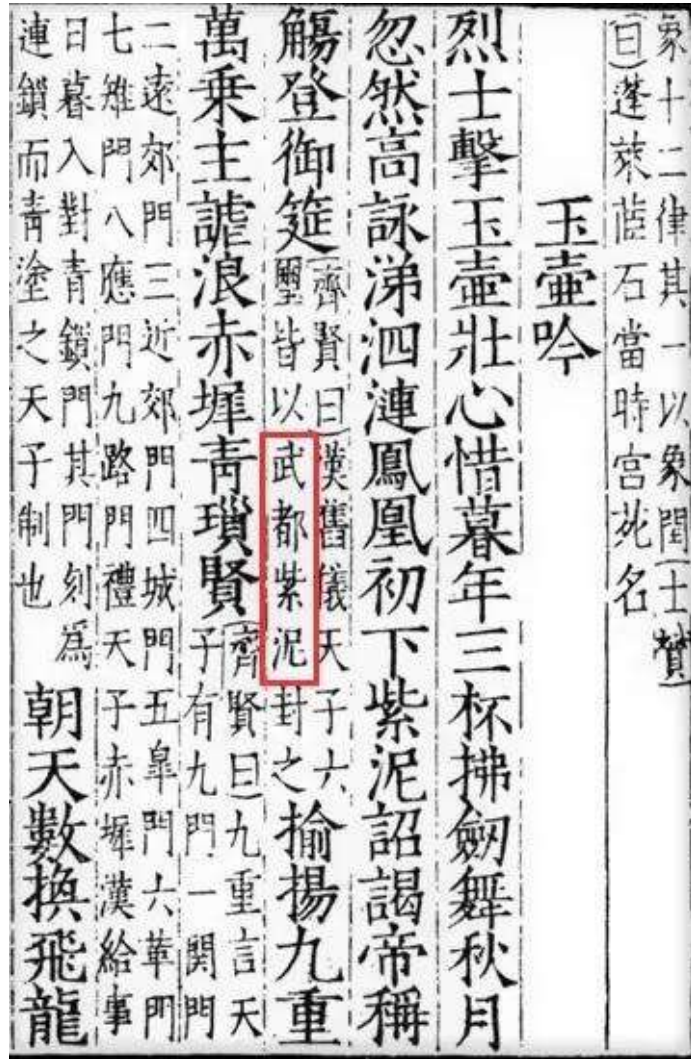 象十二律其一以象閏士贇
曰蓬萊石當時宮苑名
玉壷吟
烈士擊玉壷壯心惜暮年三杯拂劒舞秋月
忽然高詠涕泗漣鳳凰初下紫泥詔謁帝稱
觴登御筵
齊賢曰漢舊儀天子六
璽皆以武都紫泥封之
揄揚九重
萬乗主謔浪赤墀靑瑣賢
齊賢曰九重言天
子有九門一関門
二遠郊門三近郊門四城門五皐門六華門
七雉門八應門九路門禮天子赤墀漢給事
日暮入對青鎖門其門刻爲
連鎖而青塗之天子制也
朝天數換飛龍